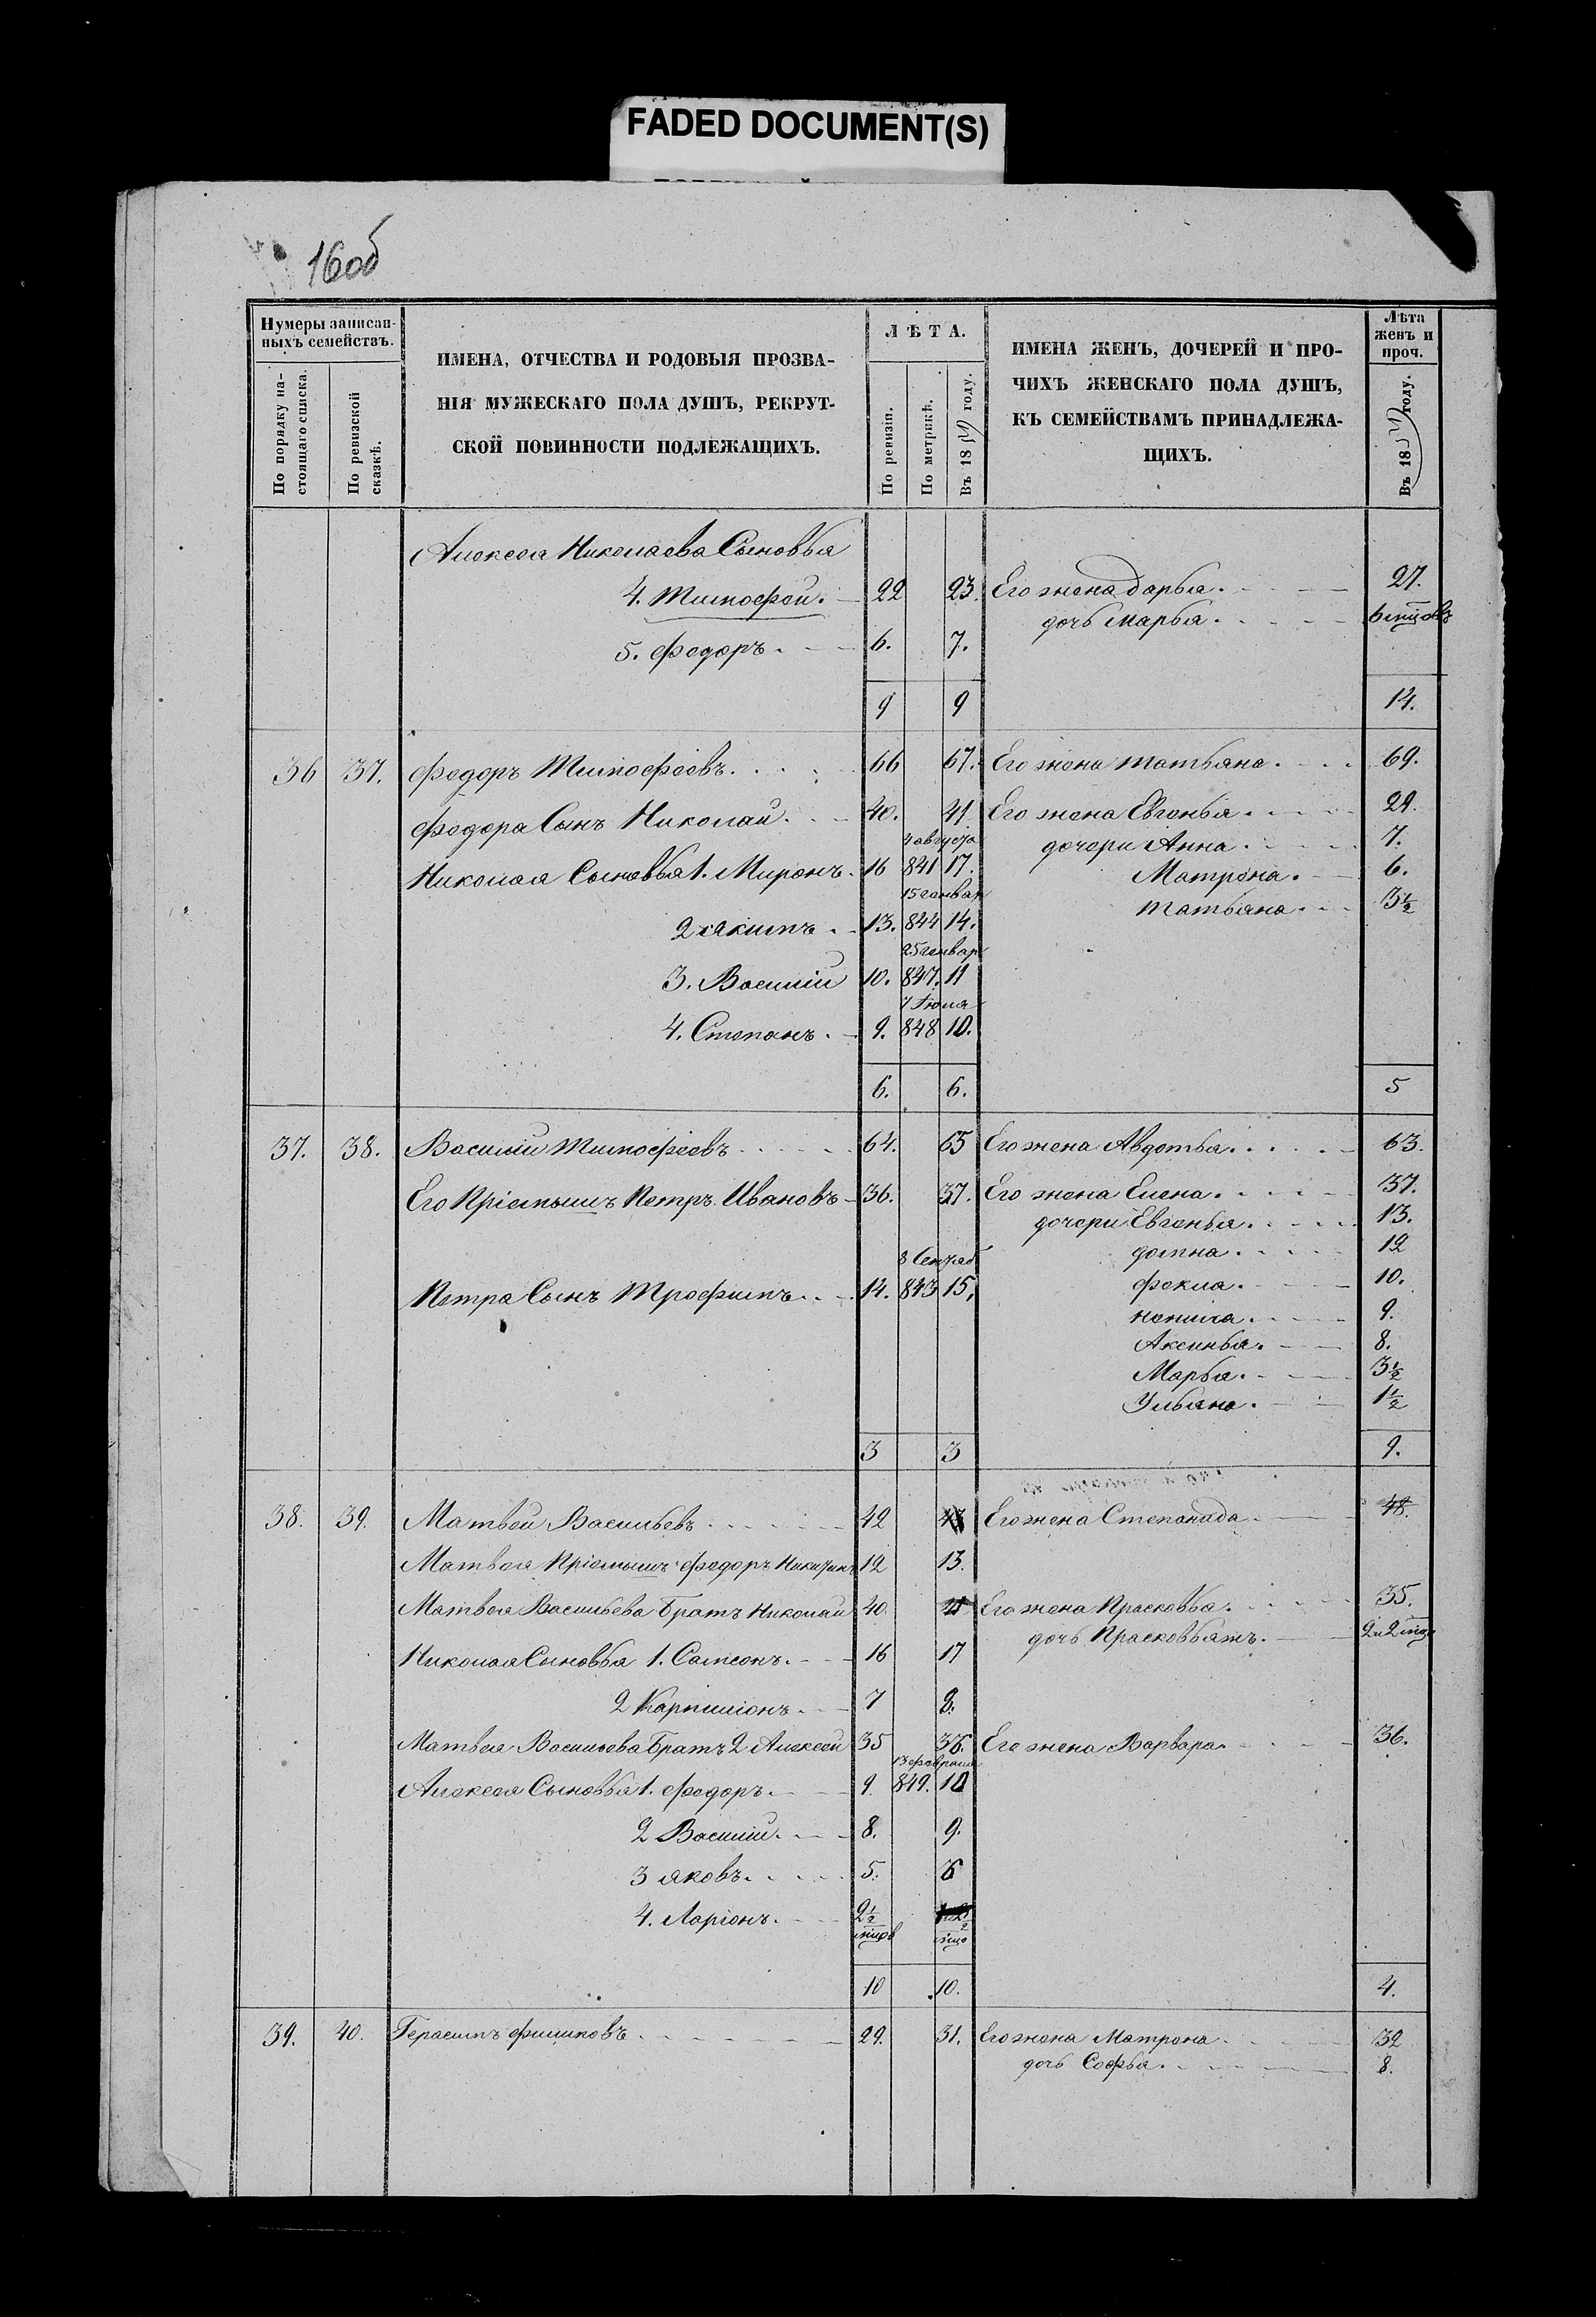 FADED DOCUMENT(S)
16об
Нумеры записан-
ныхъ семействъ.
По порядку на-
стоящаго списка.
По ревизской
сказкѣ.
ИМЕНА, ОТЧЕСТВА И РОДОВЫЯ ПРОЗВА-
НІЯ МУЖЕСКАГО ПОЛА ДУШЪ, РЕКРУТ-
СКОЙ ПОВИННОСТИ ПОДЛЕЖАЩИХЪ.
ЛѢТА.
По ревизіи.
По метрикѣ.
Въ 18 году.
ИМЕНА ЖЕНЪ, ДОЧЕРЕЙ И ПРО-
ЧИХЪ ЖЕНСКАГО ПОЛА ДУШЪ,
КЪ СЕМЕЙСТВАМЪ ПРИНАДЛЕЖА-
ЩИХЪ.
Лѣта
женъ и
проч.
Въ 18 году.
Алексея Николаева Сыновья
4. Тимофей. 22 23. Его жена Дарья. 27.
дочь Марья. 6 мцовъ
5. Федоръ. 6. 7.
9 9 14.
36 37. Федоръ Тимофеевъ. 66 67. Его жена Татьяна. 69.
Федора Сынъ Николай. 40. 41 Его жена Евгенья. 29.
4 августа дочери Анна. 7.
Николая Сыновья 1. Миронъ. 16 841 17. Матрена. 6.
15 генвар Татьяна. 3½
2 Якимъ. 13. 844 14.
25 генвар
3. Василій 10. 847. 11
7 Іюля
4. Степанъ. 9. 848 10.
6. 6. 5
37. 38. Василій Тимофеевъ 64. 65 Его жена Авдотья. 63.
Его Пріемышъ Петръ Ивановъ 36. 37. Его жена Елена. 37.
дочери Евгенья. 13.
8 Сентяб Домна. 12
Петра Сынъ Трофимъ. 14. 843 15. Фекла. 10.
Ненила. 9.
Аксинья. 8.
Марья. 3½
Ульяна. 1½
3 3 9.
38. 39. Матвей Васильевъ 42 43 Его жена Степанида 48.
Матвея Пріемышъ Федоръ Никитинъ 12 13.
Матвея Васильева Братъ Николай 40. 41 Его жена Прасковья. 35.
дочь Прасковья 2 и 2 мца
Николая Сыновья 1. Самсонъ. 16 17
2 7 8.
Матвея Васильева Братъ 2 Алексей 35 36. Его жена Варвара. 36.
13 февраля
Алексея Сыновья 1. Федоръ. 9. 849. 10
2 Василій. 8. 9.
3 Яковъ. 5. 6
4. Ларіонъ. 2½
мцов мцо
10 10. 4.
39. 40. Герасимъ Филиповъ 29. 31. Его жена Матрена 32
дочь Софья. 8.